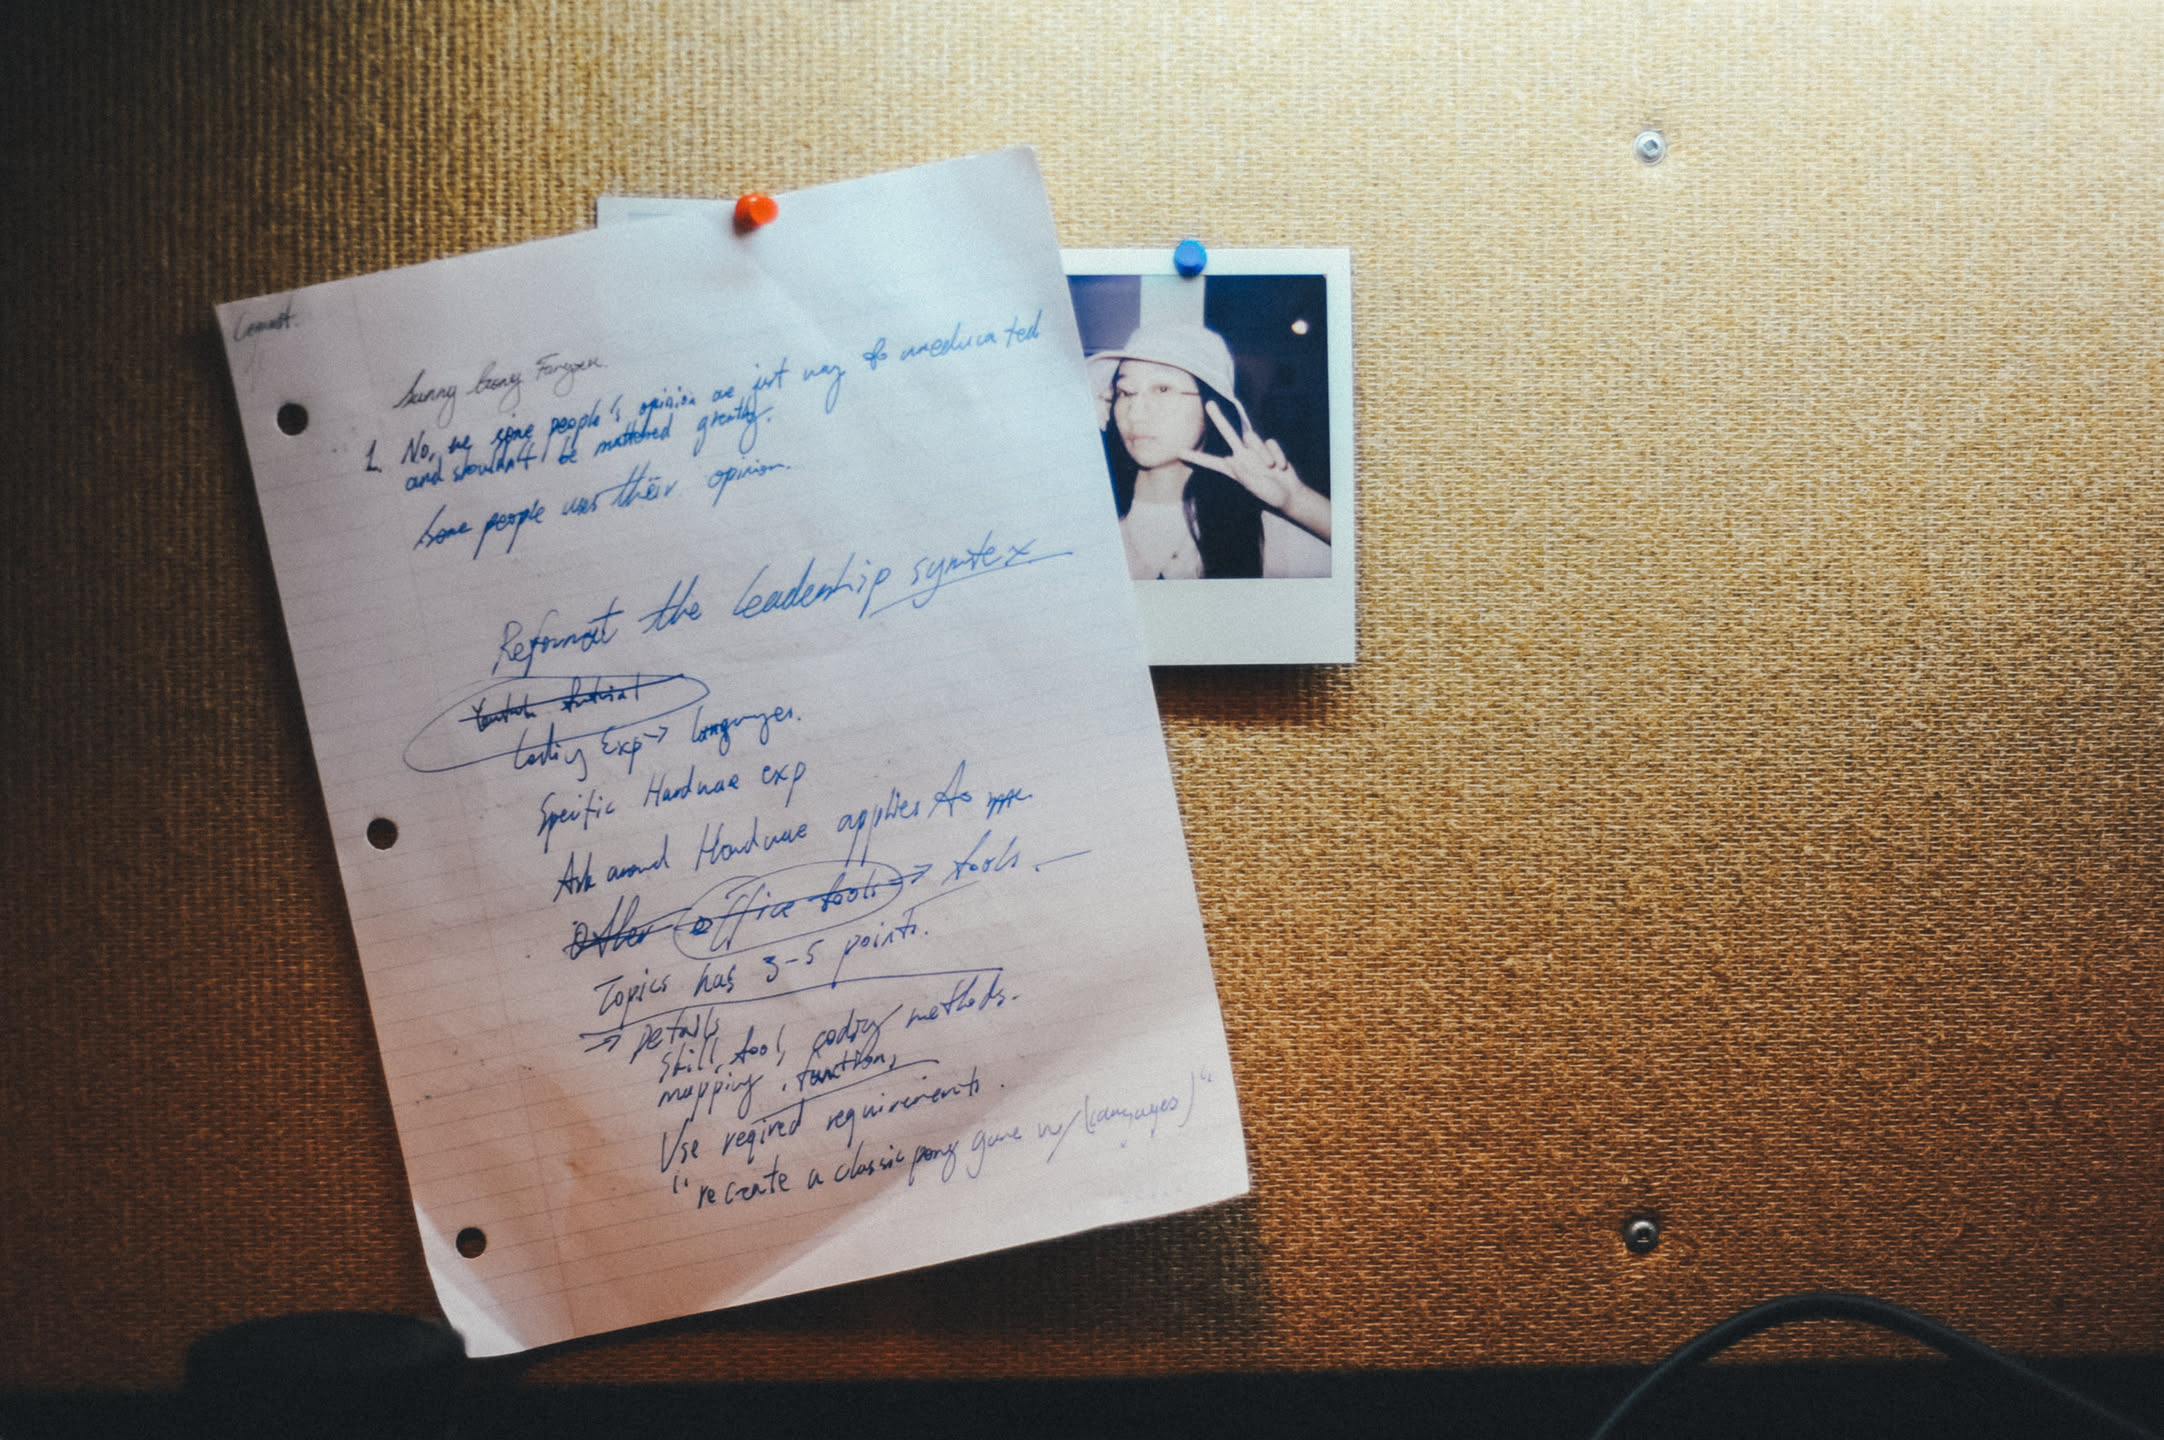 1. No, some people's opinion are just way to uneducated
and shouldn't be mattered greatly.
Some people uses their opinion.
Reformat the leadership symtex
Coding Exp → languages.
Specific Hardware exp
Ask around Hardware applies to
Other office tools → tools.
Topics has 3-5 points.
→ Details
skill, tool, coding methods.
mapping, function,
Use reqired requirements.
"recreate a classic pong game w/ (languages)"